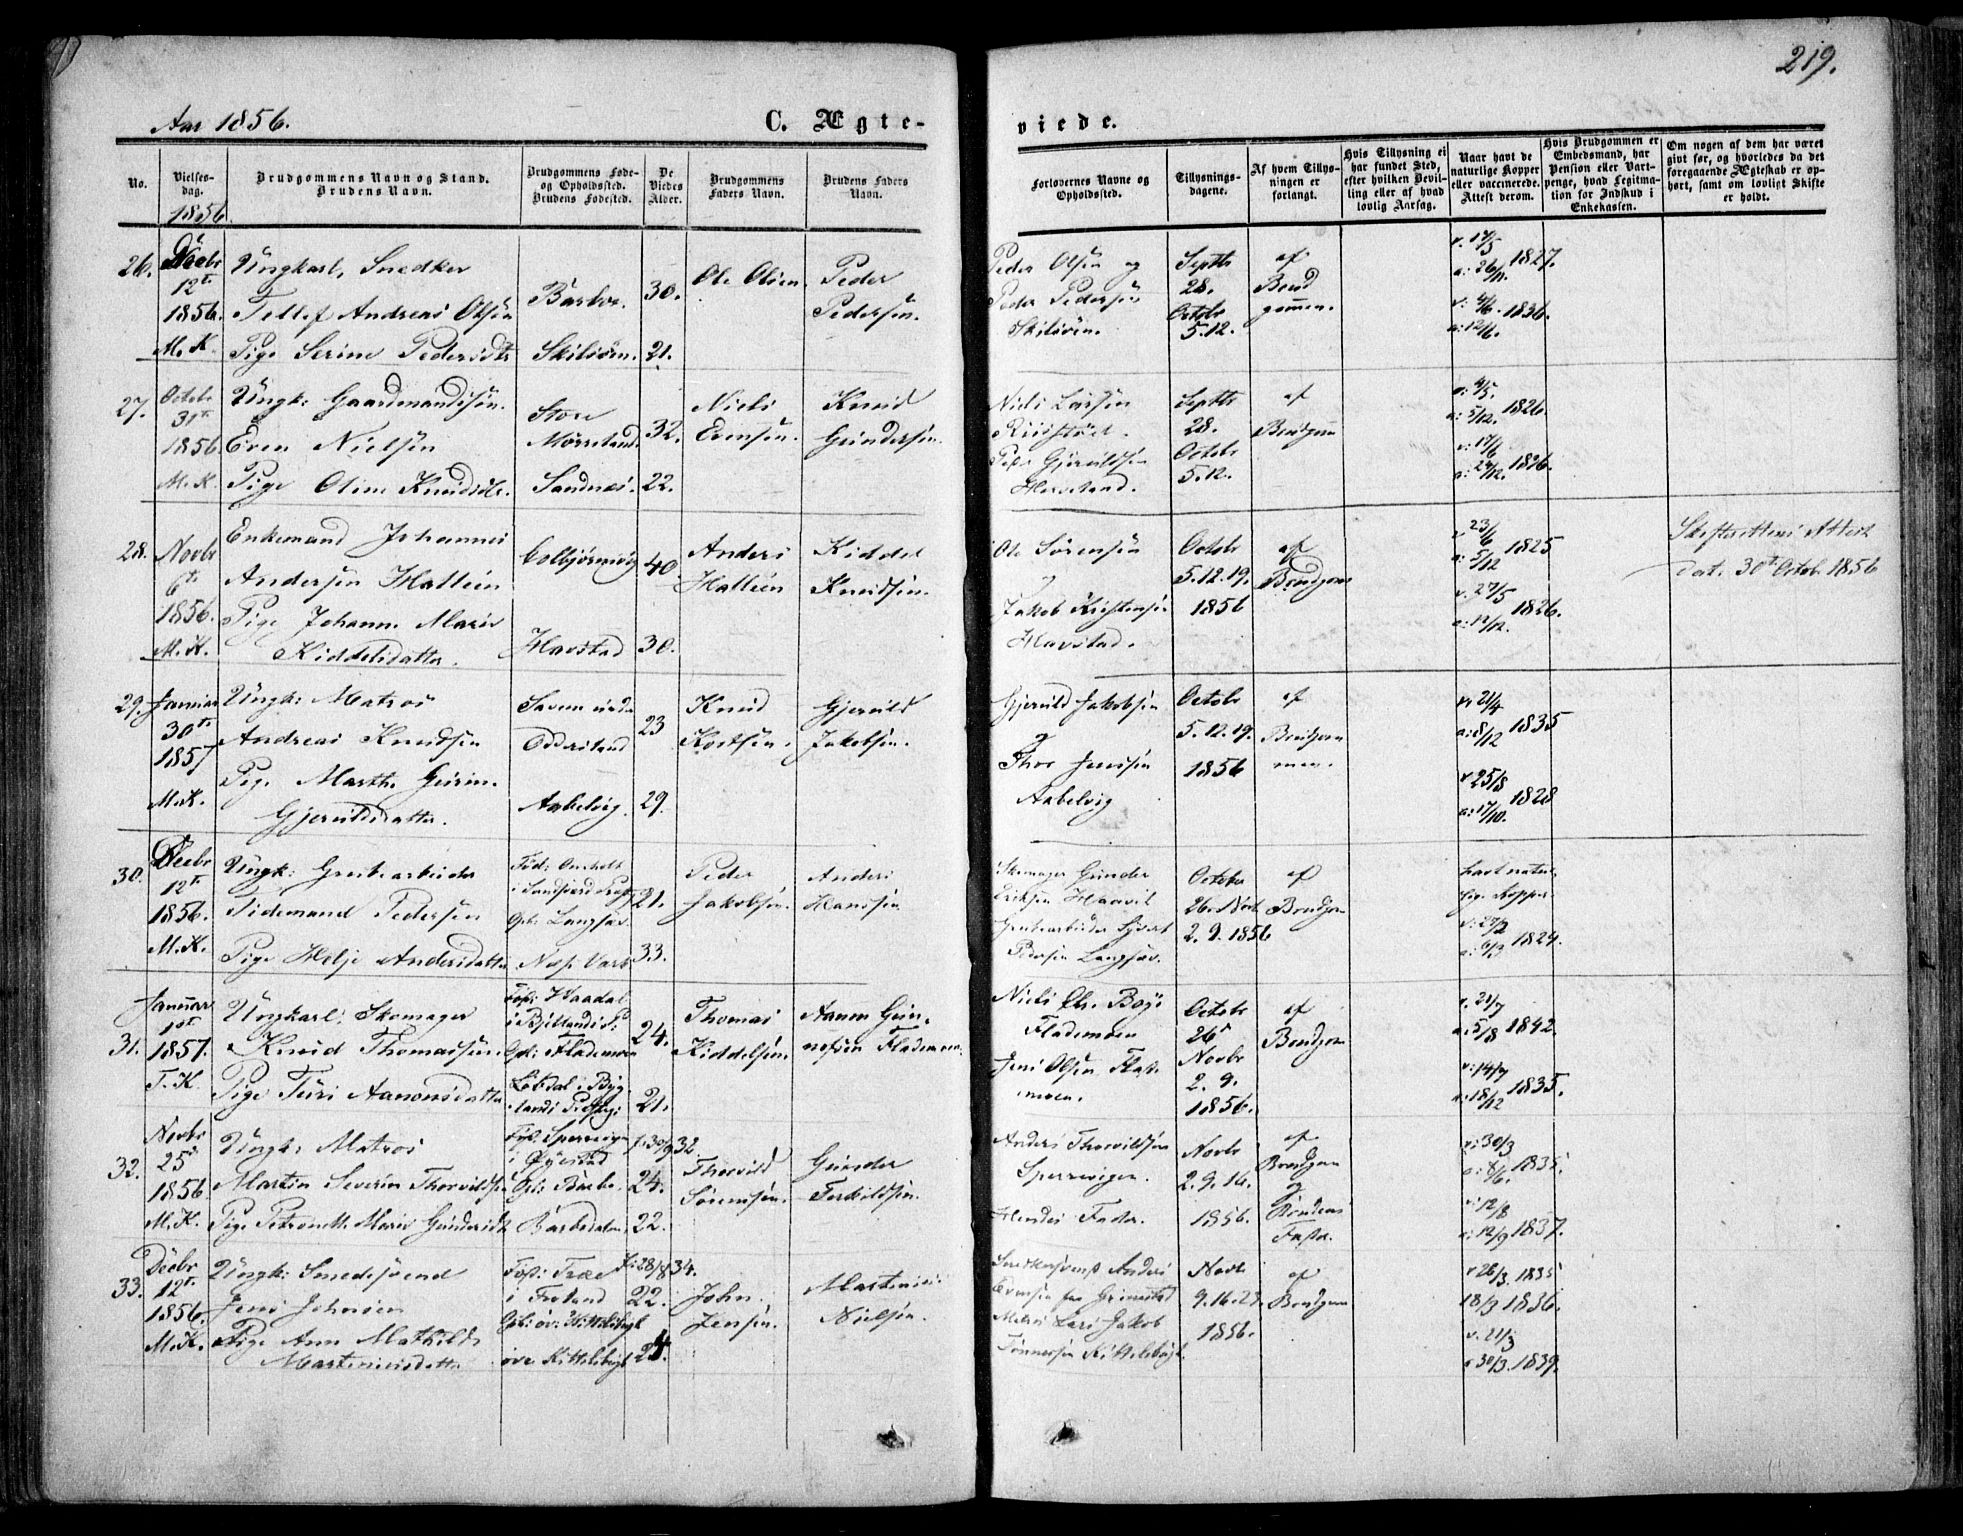 219.
Aar 1856.
C. Ægte-
viede.
No.
Vielses-
dag.
1856
Brudgommens Navn og Stand.
Brudens Navn.
Brudgommens Føde-
og Opholdssted.
Brudens Fødested.
De
Viedes
Alder.
Brudgommens
Faders Navn.
Brudens Faders
Navn.
Forlovernes Navne og
Opholdssted.
Tillysnings-
dagene.
Af hvem Tillys-
ningen er
forlangt.
Hvis Tillysning ei
har fundet Sted,
efter hvilken Bevil-
ling eller af hvad
lovlig Aarsag.
Naar havt de
naturlige Kopper
eller vaccinerede.
Attest derom.
Hvis Brudgommen er
Embedsmand, har
Pension eller Vart-
penge, hvad Legitima-
tion for Indskud i
Enkekassen.
Om nogen af dem har været
gift før, og hvorledes da det
foregaaende Ægteskab er op-
hørt, samt om lovligt Skifte
er holdt.
26. Decbr 12te 1856. M.K.
Ungkarl, Snedker
Tellef Andreas Olsen
Pige Serine Pedersdtr
Barbo.
30.
Skilsøen. 21.
Ole Olsen.
Peder
Pedersen.
Peder Olsen og
Peder Pedersen
Skilsøen.
Septbr
28.
Octobr
5.12.
af
Brud
gommen.
v. 17/5
a: 26/11. 1827.
v: 4/6. 1836.
a: 12/6.
27. Octobr 31te 1856 M.K.
Ungk: Gaardmandssøn.
Even Nielsen
Pige Oline Knudsdtr.
Store
32.
Sandnæs. 22.
Niels
Evensen.
Knud
Gundersen.
Niels Larsen
Septbr
28.
Octobr
5.12.
af
Brudgom
1826.
1826.
28. Novbr 6te 1856. M.K.
Enkemand Johannes
Andersen Hallien
Pige Johanne Marie
Kiddelsdatter.
Colbjørnsvig 40
Havstad 30.
Anders
Hallien
Kiddel
Knudsen.
Ole Sørensen
og
Jakob Kristensen
Havstad.
Octobr
5.12.19.
1856
af
Brudgom
v 23/6
a: 5/12 1825
v. 27/5
a: 12/12. 1826.
Skifterettens Attest
dat. 30te Octob. 1856
29. Januar 30te 1857 M.K.
Ungk: Matros
Andreas Knudsen
Pige Marthe
Gjeruldsdatter.
23
29.
Knud
Gjeruld
Jakobsen.
Gjeruld Jakobsen
og
Thor Jensen
Octobr
5.12.19.
1856
af
Brudgom
men.
v 21/4
a: 8/12 1835
v 25/8
a: 17/10. 1828
30. Decbr 12te 1856. M.K.
Ungk: Grubearbeider
Tidemand Pedersen
Pige Helje Andersdatter
Langsæv.
21.
33.
Peder
Jakobsen.
Anders
Hansen
Skomager Gunder
Grubearbeider
Langsæv.
October
26. Novb
2.9. 1856
af
Brudgom
havt natur
lige Kopper.
v: 27/2
a: 6/3 1824.
31. Januar 1st 1857. T.K.
Ungkarl, Skomager
Knud Thomassen.
Pige Turi Aanonsdatter
24.
21.
Thomas
Kiddelsen.
Aanon Gun-
Niels Chr. Boye
Flademoen
Jens Olsen Flade
moen.
Octobr
26
Novbr
2.9.
1856.
af
Brudgom
v. 21/7
a. 5/8 1842.
v: 14/7
a. 18/12 1835.
32. Novbr 25de 1856 M.K.
Ungk: Matros
Martin Severin Thorvildsen
Pige Petronelle Marie Gundersdt
i Øyestad
f: 30/9 32
24.
22.
Thorvild
Sørensen.
Gunder
Terkildsen.
Anders Thorvildsen
Sperrevigen.
Hendes Fader.
Novbr
2.9.16.
1856.
af
Brudgom
og
Brudens
Fader.
v: 30/3
a: 8/6. 1835.
v: 12/8
a: 12/9 1837.
33. Decbr 12te 1856. M.K.
Ungk: Smedesvend
Jens Johnsen
Pige Ann Mathilde
Martiniusdatter
Fød: Træe
i Froland
f: 28/8 34.
22.
øvr. Kittelsbugt 24.
John
Jensen.
Martinius
Nielsen.
Anders
Evensen fra Grimstad
Lars Jakob
Tønnesen Kittelsbugt.
Novbr
9.16.23.
1856.
af
Brudgom
v 26/3. 1835
18/3 1836.
v. 21/3
a 30/3. 1839.